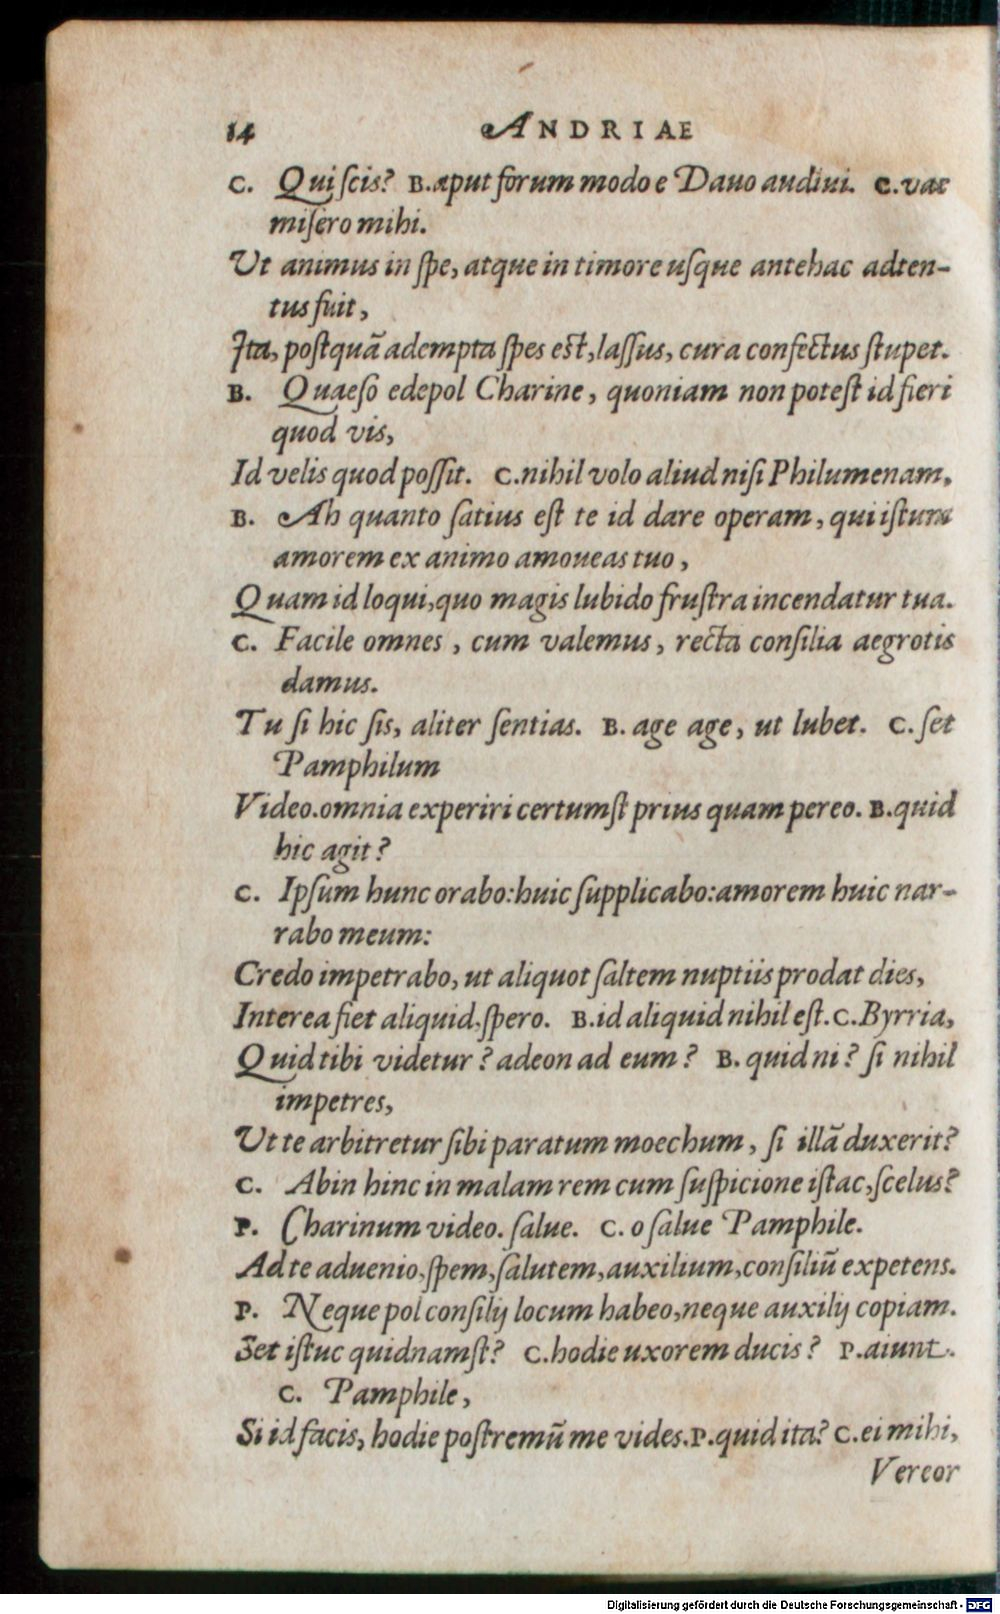 14 ANDRIAE
C. Qui ſcis? B. aput forum modo e Dauo audiui. C. vae
miſero mihi.
Ut animus in ſpe, atque in timore uſque antehac adten-
tus fuit,
Ita, poſtquã adempta ſpes eſt, laſſus, cura confectus ſtupet.
B. Quaeſo edepol Charine, quoniam non poteſt id fieri
quod vis,
Id velis quod poſſit. C. nihil volo aliud niſi Philumenam,
B. Ah quanto ſatius eſt te id dare operam, qui iſtum
amorem ex animo amoueas tuo,
Quam id loqui, quo magis lubido fruſtra incendatur tua.
C. Facile omnes, cum valemus, recta conſilia aegrotis
damus.
Tu ſi hic ſis, aliter ſentias. B. age age, ut lubet. C. ſet
Pamphilum
Video. omnia experiri certumſt prius quam pereo. B. quid
hic agit?
C. Ipſum hunc orabo: huic ſupplicabo: amorem huic nar-
rabo meum:
Credo impetrabo, ut aliquot ſaltem nuptiis prodat dies,
Interea fiet aliquid, ſpero. B. id aliquid nihil eſt. C. Byrria,
Quid tibi videtur? adeon ad eum? B. quid ni? ſi nihil
impetres,
Ut te arbitretur ſibi paratum moechum, ſi illã duxerit?
C. Abin hinc in malam rem cum ſuſpicione iſtac, ſcelus?
P. Charinum video. ſalue. C. o ſalue Pamphile.
Ad te aduenio, ſpem, ſalutem, auxilium, conſiliũ expetens.
P. Neque pol conſilij locum habeo, neque auxilij copiam.
Set iſtuc quidnamſt? C. hodie uxorem ducis? P. aiunt.
C. Pamphile,
Si id facis, hodie poſtremũ me vides. P. quid ita? C. ei mihi,
Vereor
Digitalisierung gefördert durch die Deutsche Forschungsgemeinschaft - DFG